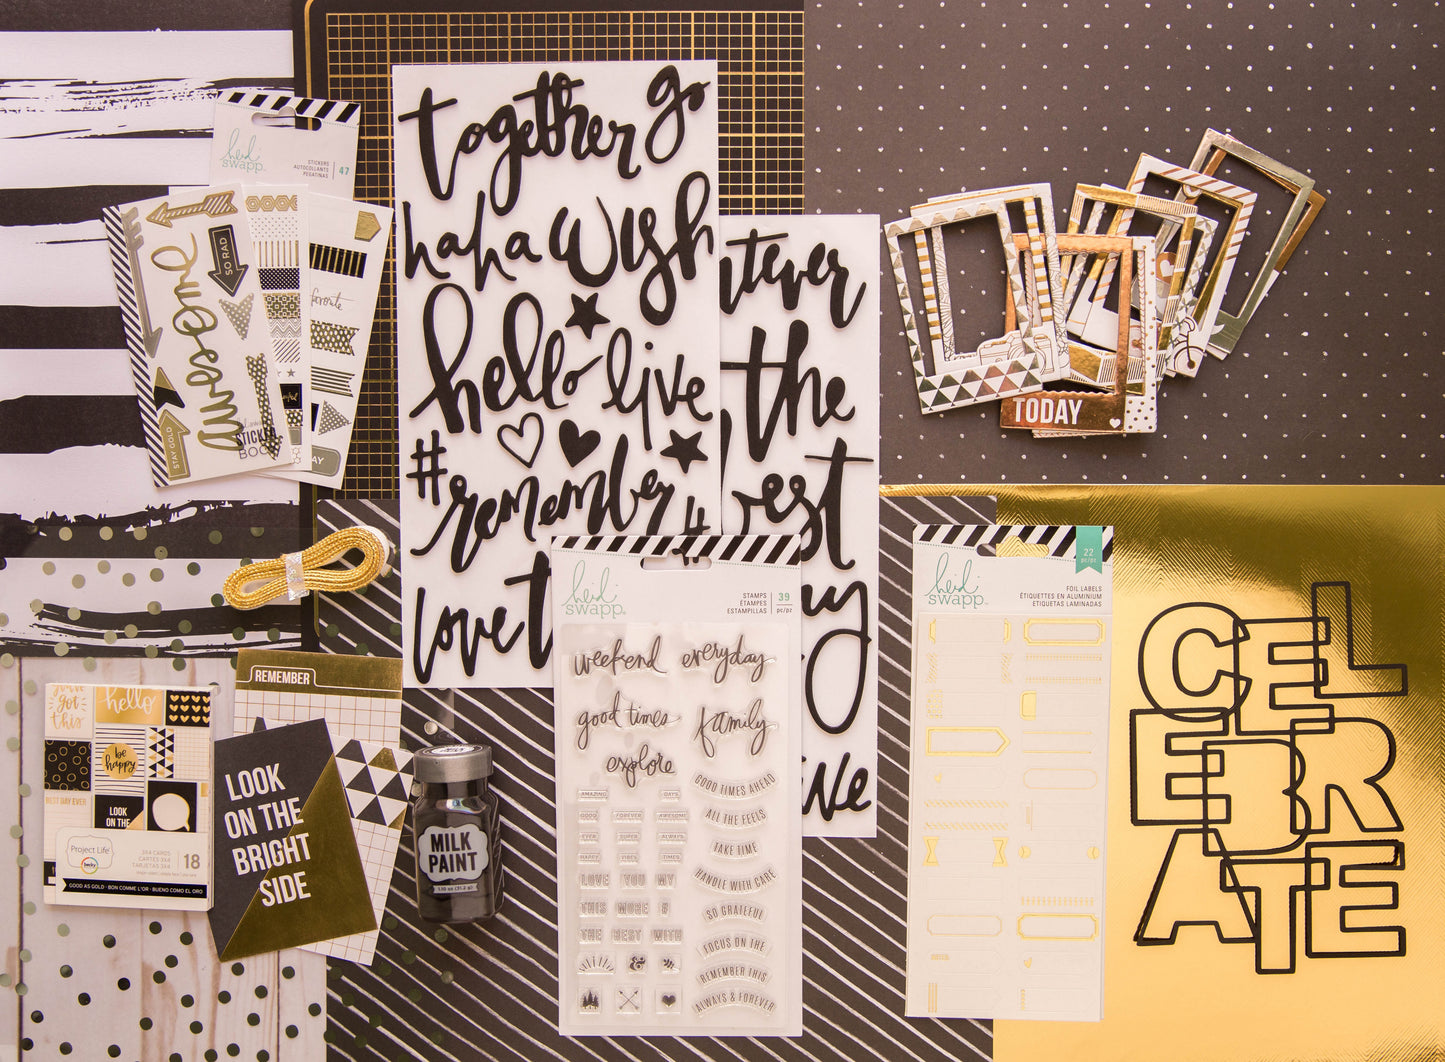 heidi
swapp™
STICKERS
AUTOCOLLANTS
PEGATINAS
47
awesome
SO RAD
STAY GOLD
favorite
STICKER
BOOK
together
go
haha
wish
hello
live
#remember
#
love
the
best
TODAY
heidi
swapp™
STAMPS
ÉTAMPES
ESTAMPILLAS
39
pc/pz
weekend
everyday
good times
family
explore
AMAZING
DAYS
GOOD
FOREVER
AWESOME
EVER
SUPER
ALWAYS
HAPPY
VIBES
TIMES
LOVE
YOU
MY
THIS
MORE
#
THE
BEST
WITH
&
GOOD TIMES AHEAD
ALL THE FEELS
TAKE TIME
HANDLE WITH CARE
SO GRATEFUL
FOCUS ON THE
REMEMBER THIS
ALWAYS & FOREVER
heidi
swapp™
22
pc/pz
FOIL LABELS
ÉTIQUETTES EN ALUMINIUM
ETIQUETAS LAMINADAS
CEL
EBR
ATE
REMEMBER
you've
got
this
hello
be
happy
BEST DAY EVER
LOOK
ON THE
Project Life
becky
3X4 CARDS
CARTES 3X4
TARJETAS 3X4
18
GOOD AS GOLD · BON COMME L'OR · BUENO COMO EL ORO
LOOK
ON THE
BRIGHT
SIDE
MILK
PAINT